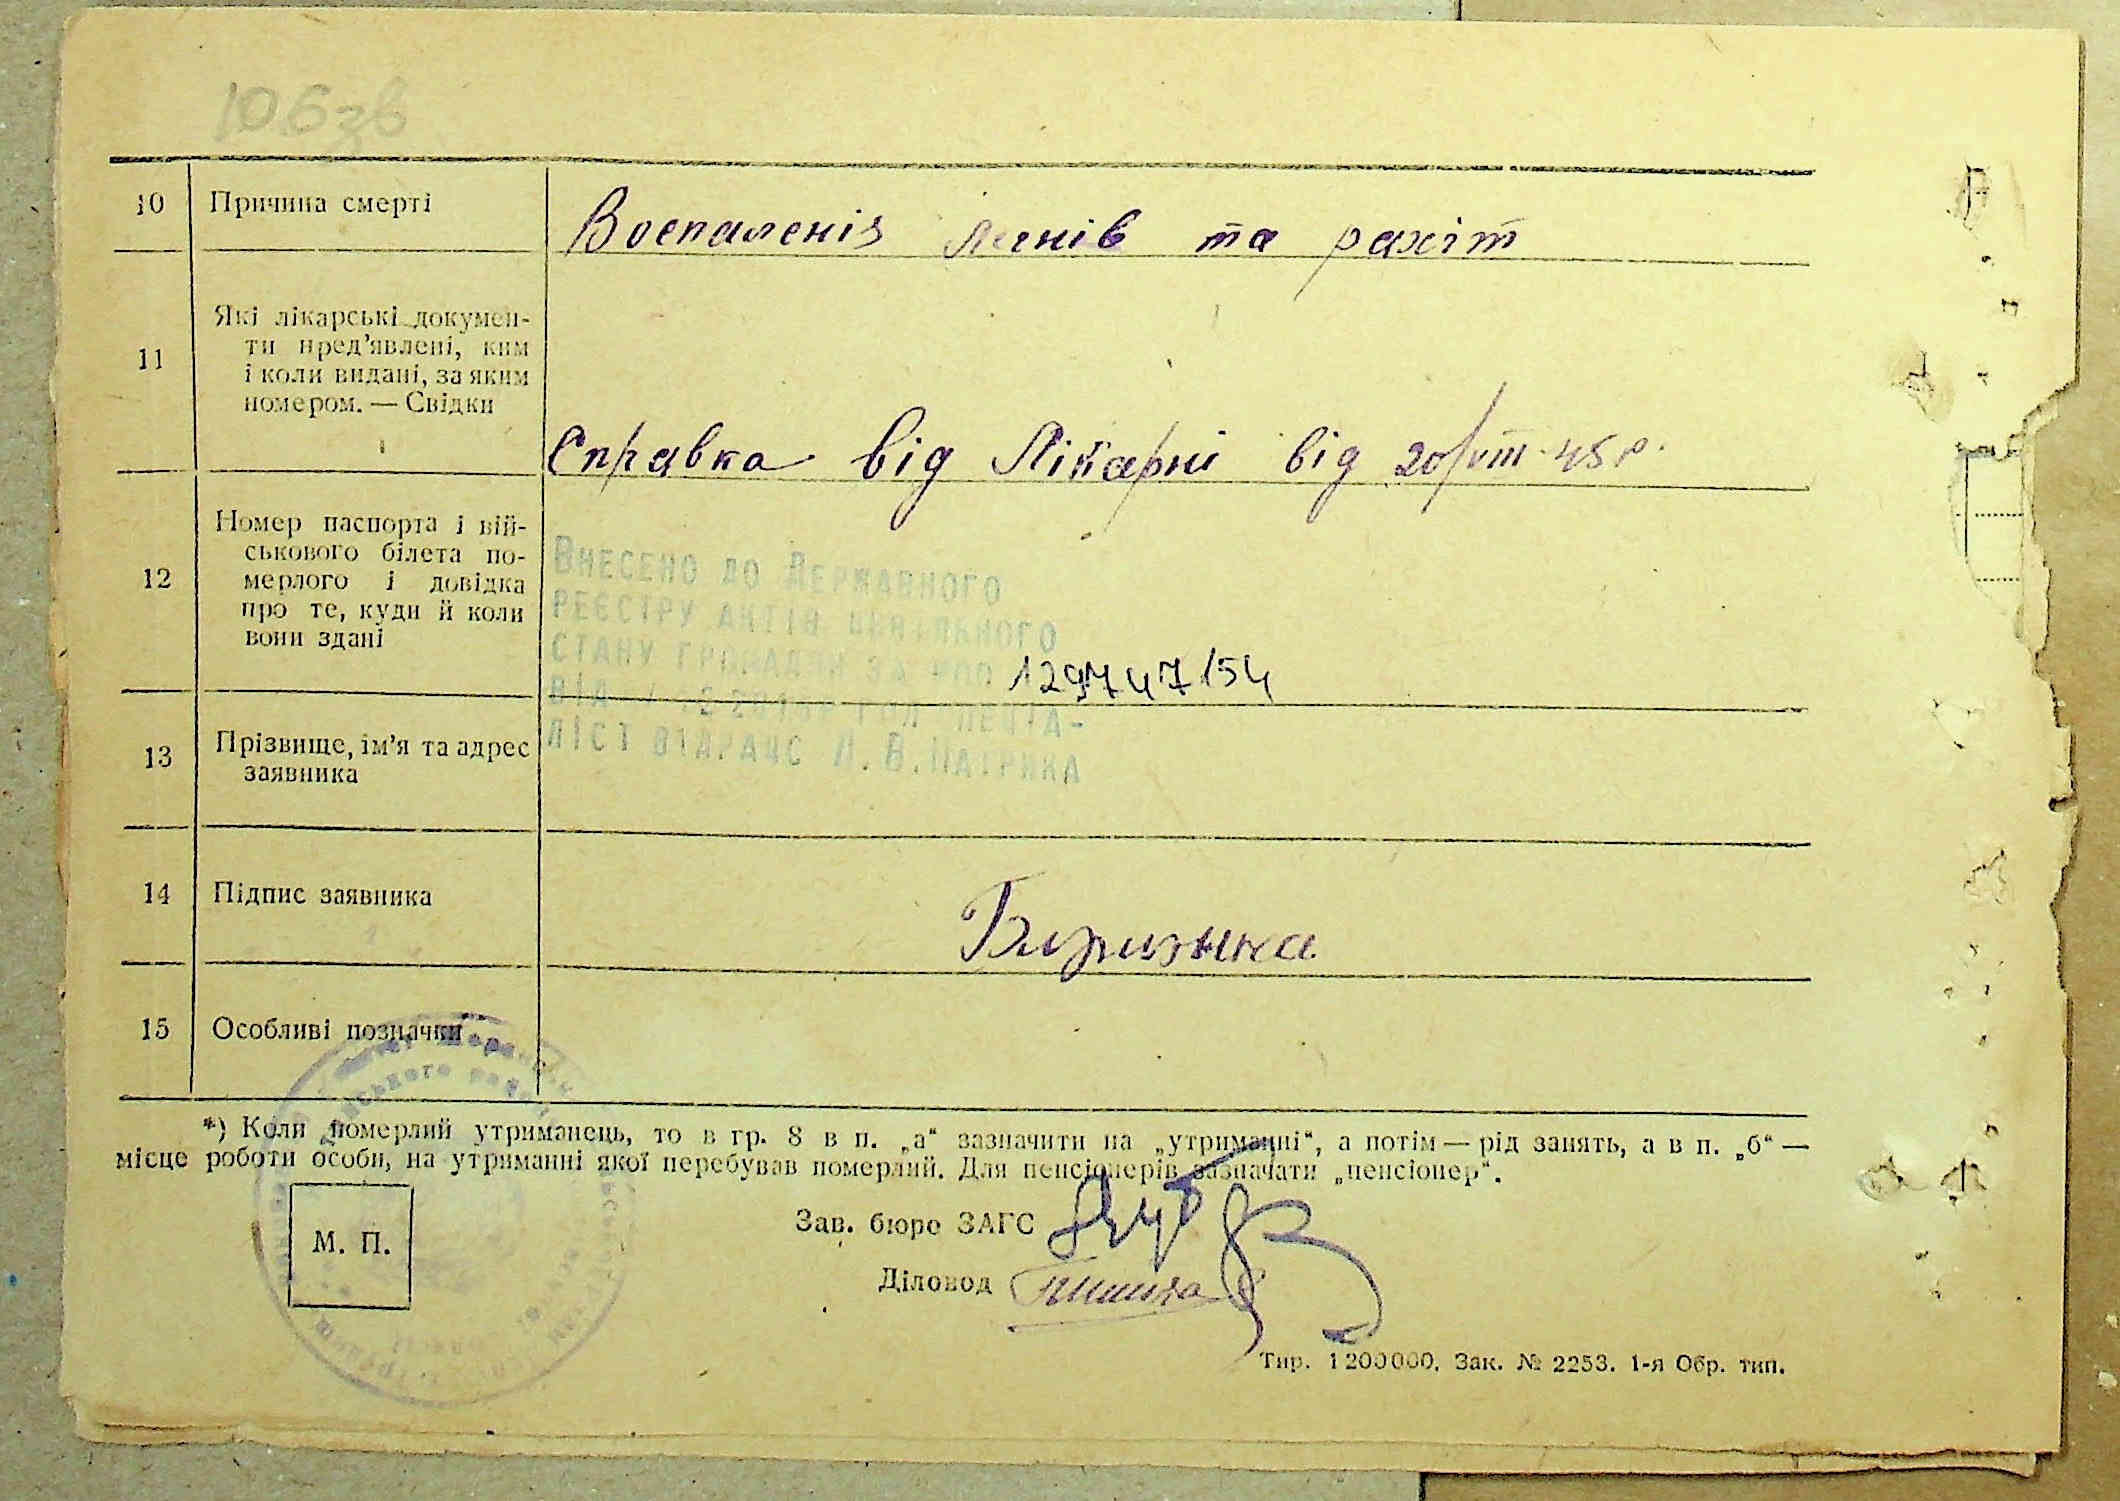 106зв
10 Причина смерті Воспаленія ліанів та рахіт
11 Які лікарські документи пред'явлені, ким
і коли видані, за яким
номером. — Свідки
Справка від Лікарні від 20/VIII-45 р.
12 Номер паспорта і вій-
ськового білета по-
мерлого і довідка
про те, куди й коли
вони здані
Внесено до Державного
реєстру актів цивільного
стану громадян за
129747154
від
ліст відрацс Л. В. Патрика
13 Прізвище, ім'я та адрес
заявника
14 Підпис заявника
15 Особливі позначки
*) Коли померлий утриманець, то в гр. 8 в п. „а“ зазначити на „утриманні“, а потім — рід занять, а в п. „б“ —
місце роботи особи, на утриманні якої перебував померлий. Для пенсіонерів зазначати „пенсіонер“.
М. П.
Зав. бюро ЗАГС
Діловод
Тир. 1200000. Зак. № 2253. 1-я Обр. тип.